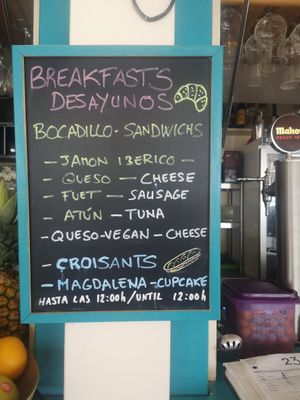 BREAKFASTS
DESAYUNOS
BOCADILLO - SANDWICHS
- JAMON IBERICO -
- QUESO - CHEESE
- FUET - SAUSAGE
- ATÚN - TUNA
- QUESO-VEGAN - CHEESE
- CROISANTS
- MAGDALENA - CUPCAKE
HASTA LAS 12:00h / UNTIL 12:00h
Mahou
23